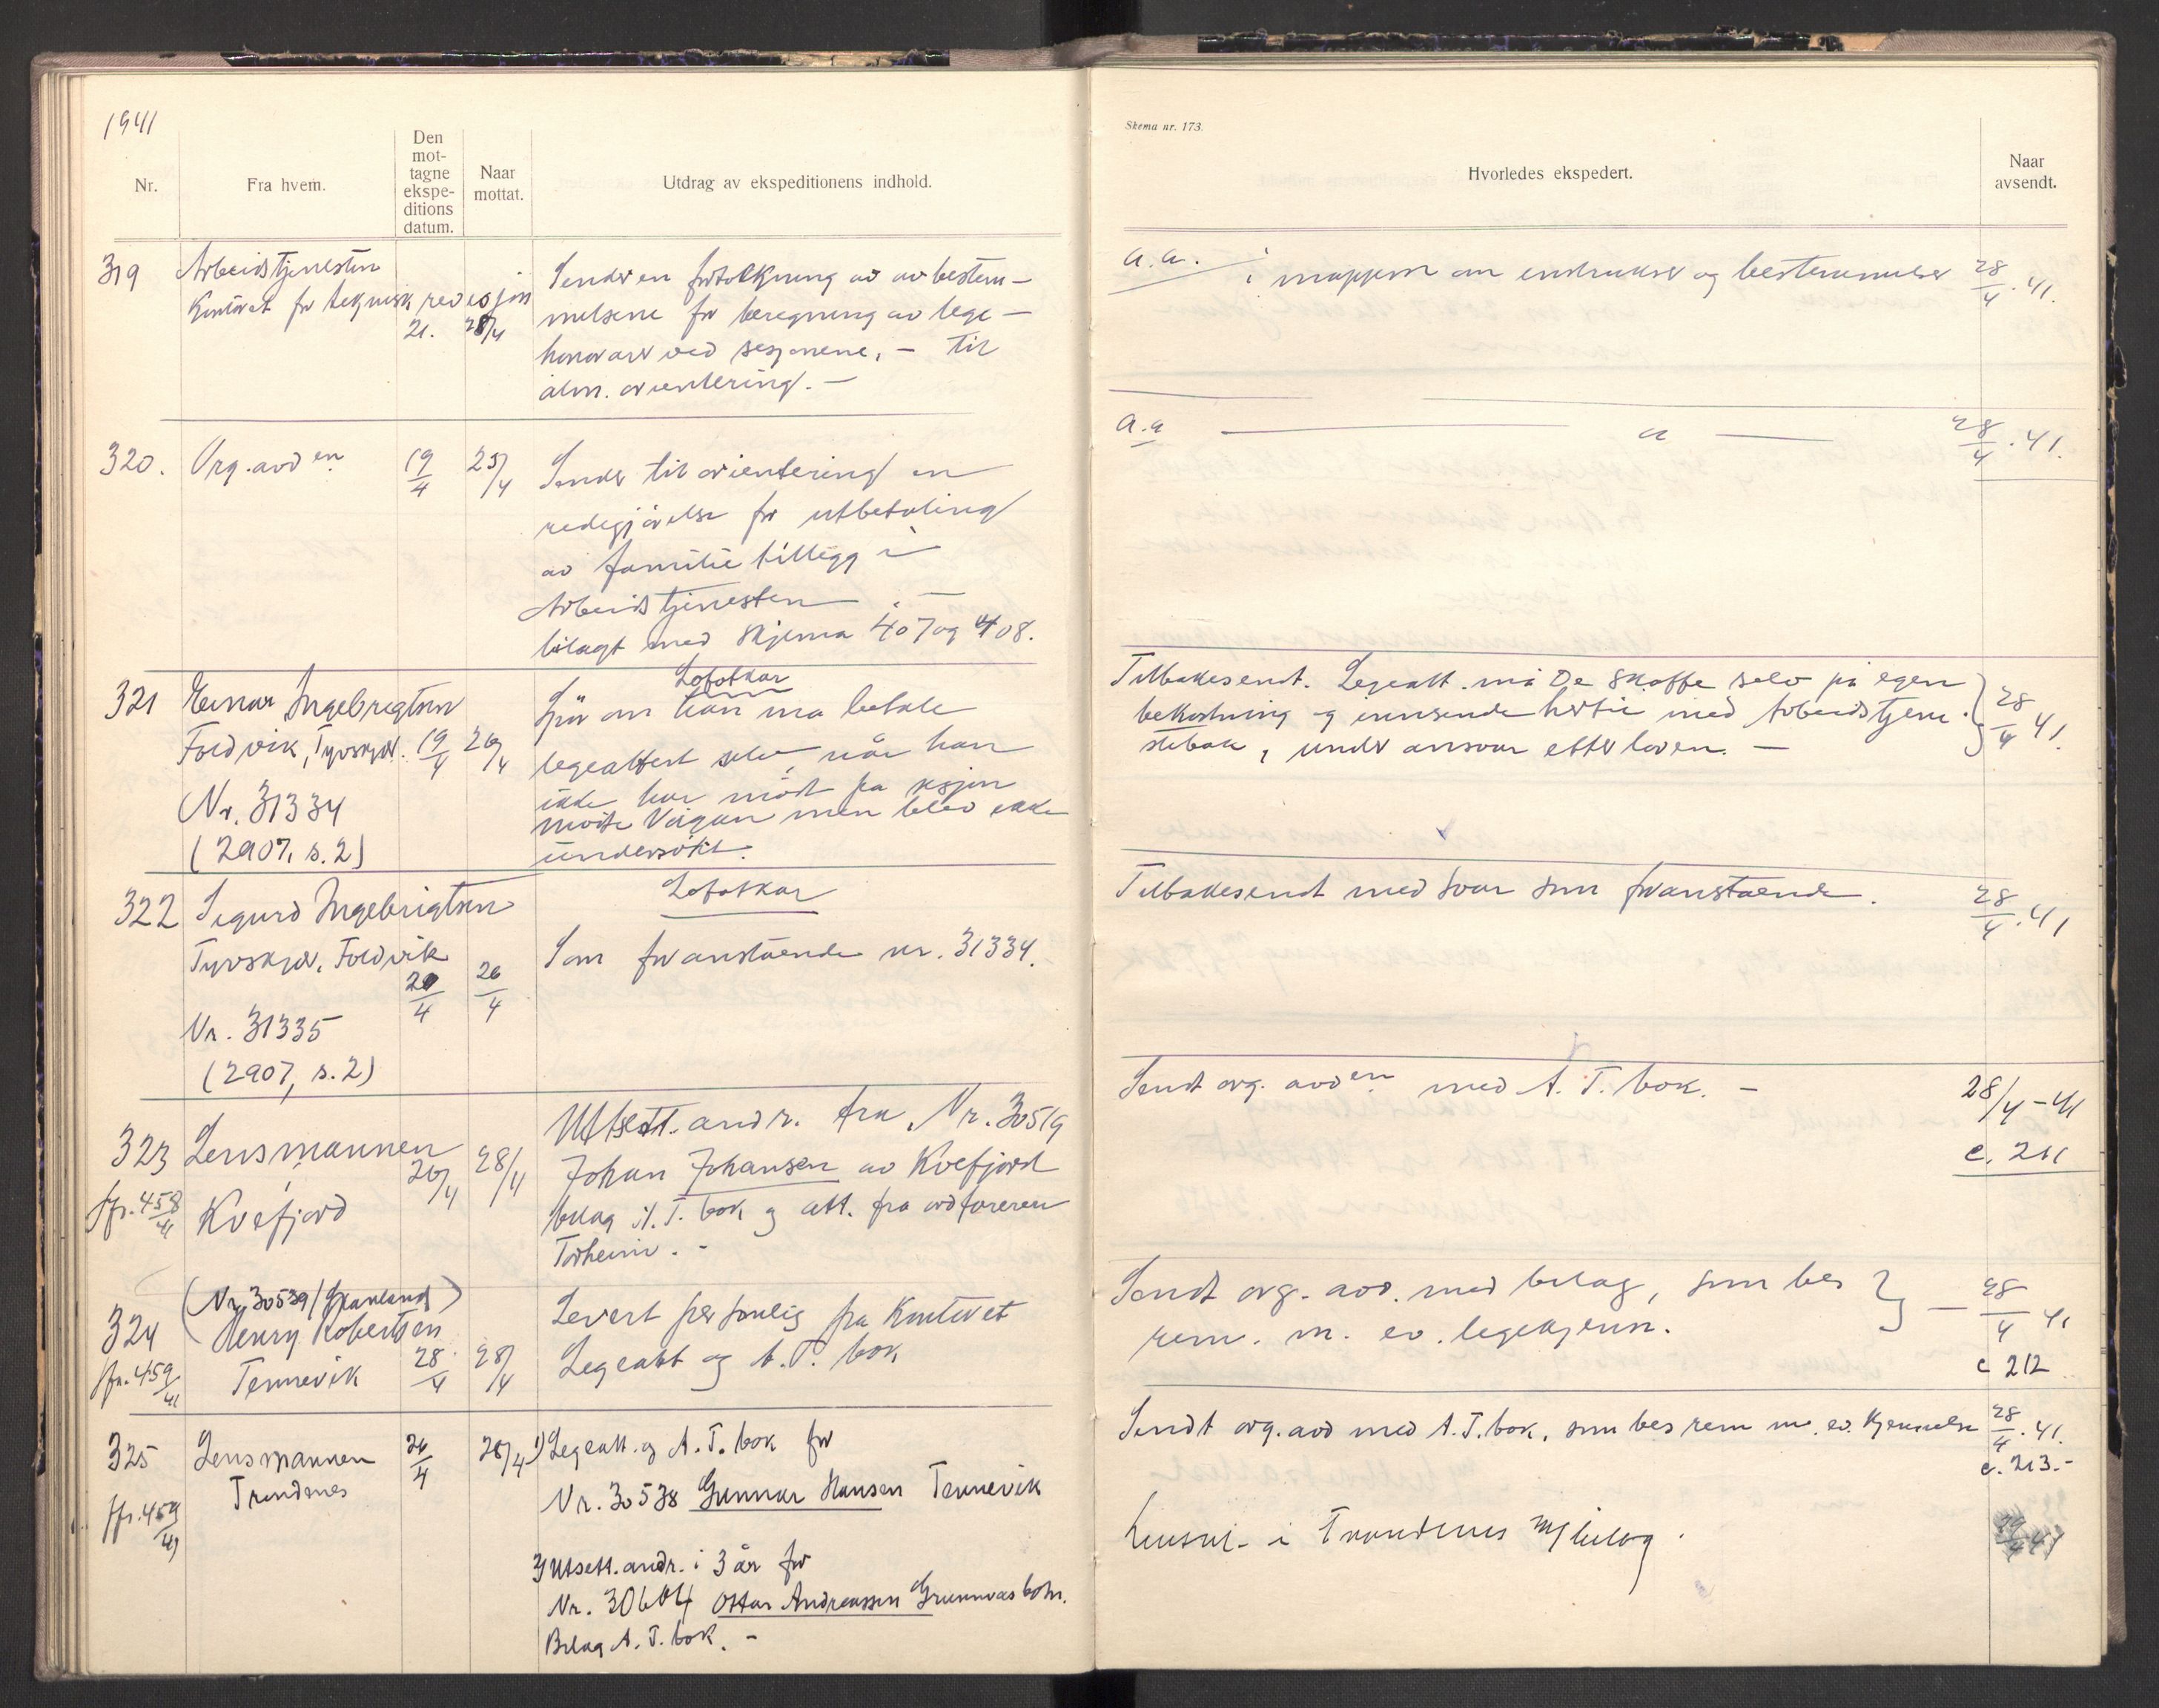 1941
Nr.
Fra hvem.
Den
mot-
tagne
ekspe-
ditions
datum.
Naar
mottat.
Utdrag av ekspeditionens indhold.
319 Arbeidstjenesten
Kontoret for teknisk revisjon
21. 28/4
Sender en fortolkning av av bestem-
melsene for beregning av lege-
honorarer ved sesjonene, - til
alm. orientering. -
320. Org.avd en 19/4 23/4
Sender til orientering en
redegjørelse for utbetaling
av familie tillegg i
Arbeidstjenesten. -
bilagt med skjema 407 og 408.
321 Einar Ingebrigtsen
Foldvik, 19/4 26/4
Nr. 31334
(2907, s. 2)
Lofotkar
Spør om han må betale
legeattest selv, når han
ikke har møtt på sesjon
møtte Vågan men blev ikke
undersøkt.
322 Sigurd Ingebrigtsen
Foldvik
20/4 26/4
Nr. 31335
(2907, s. 2)
Lofotkar
Som foranstående nr. 31334.
323 Lensmannen
Kvefjord
20/4 28/4
jfr. 458/41
Utsett. andr. fra Nr. 30519
Johan Johansen av Kvefjord
bilag A.T. bok og att. fra ordføreren
Torheim. -
324 (Nr. 30539/Granlund)
Henry Robertsen
Tennevik 28/4 28/4
jfr. 459/41
Levert personlig fra Kontoret
Legeatt og A.T. bok
325 Lensmannen
Trondenes
26/4 28/4
jfr. 459/41
1) Legeatt. og A.T. bok for
Nr. 30538 Gunnar Hansen Tennevik
2) Utsett. andr. i 3 år for
Nr. 30604 Ottar Andreassen Grunnvasbotn.
Bilag A.T. bok. -
Skema nr. 173.
Hvorledes ekspedert.
Naar
avsendt.
a.a. i mappen om instrukser og bestemmelser 28/4.41.
a.a — " — 28/4.41.
Tilbakesendt. Legeatt. må De skaffe selv på egen
bekostning og innsende hertil med Arbeidstjene-
stebok, under ansvar efter loven. - 28/4 41.
Tilbakesendt med svar som foranstående. 28/4.41
Sendt org. avd en med A.T. bok. - 28/4-41
c. 211
Sendt org. avd. med bilag, som bes
rem. m. ev. legekjenn. - 28/4 41
c 212
Sendt org. avd med A.T. bok, som bes rem m. ev. kjennelse 28/4.41.
c. 213.-
Lensm. i Trondenes m/bilag.